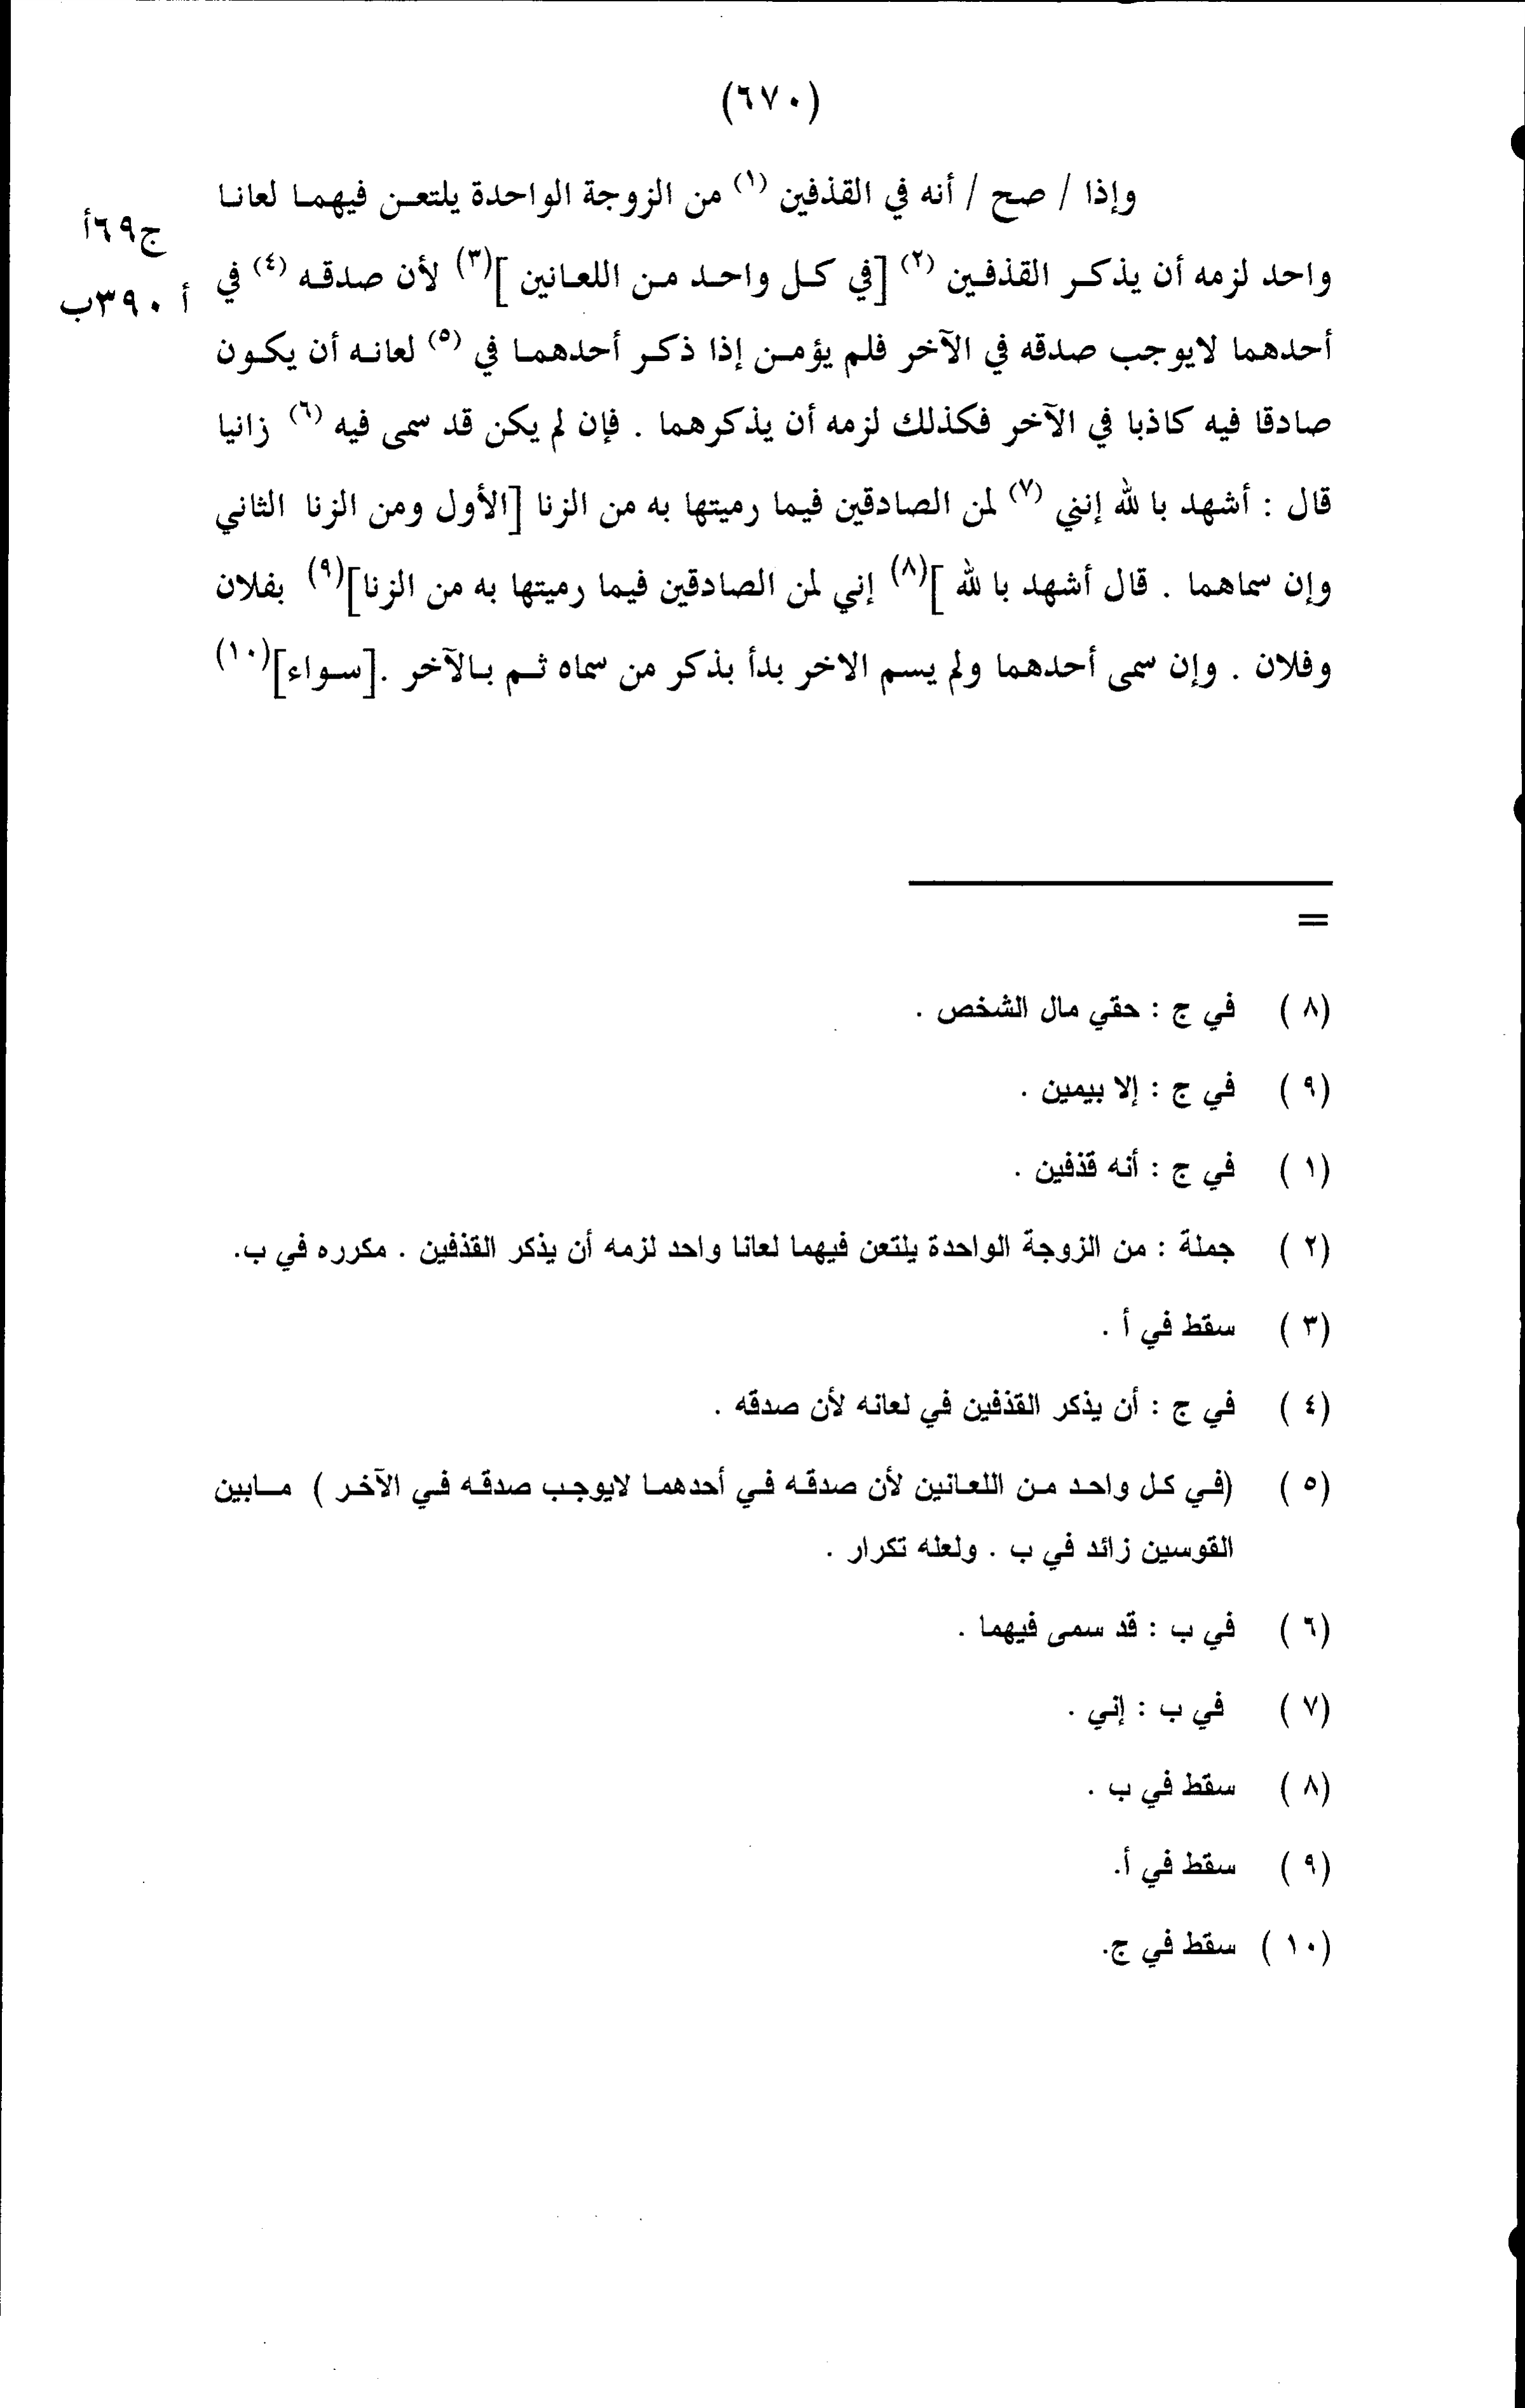 (٦٧٠)
وإذا / صح / أنه في القذفين (١) من الزوجة الواحدة يلتعن فيهما لعانا
ج٦٩أ
واحد لزمه أن يذكر القذفين (٢) [في كل واحد من اللعانين ](٣) لأن صدقه (٤) في
أ ٣٩٠ب
أحدهما لايوجب صدقه في الآخر فلم يؤمن إذا ذكر أحدهما في (٥) لعانه أن يكون
صادقا فيه كاذبا في الآخر فكذلك لزمه أن يذكرهما . فإن لم يكن قد سمى فيه (٦) زانيا
قال : أشهد با لله إنني (٧) لمن الصادقين فيما رميتها به من الزنا [الأول ومن الزنا الثاني
وإن سماهما . قال أشهد با لله ](٨) إني لمن الصادقين فيما رميتها به من الزنا](٩) بفلان
وفلان . وإن سمى أحدهما ولم يسم الاخر بدأ بذكر من سماه ثم بالآخر .[سواء](١٠)
=
(٨) في ج : حقي مال الشخص .
(٩) في ج : إلا بيمين .
(١) في ج : أنه قذفين .
(٢) جملة : من الزوجة الواحدة يلتعن فيهما لعانا واحد لزمه أن يذكر القذفين . مكرره في ب.
(٣) سقط في أ .
(٤) في ج : أن يذكر القذفين في لعانه لأن صدقه .
(٥) (في كل واحد من اللعانين لأن صدقه في أحدهما لايوجب صدقه في الآخر ) مابين
القوسين زائد في ب . ولعله تكرار .
(٦) في ب : قد سمى فيهما .
(٧) في ب : إني .
(٨) سقط في ب .
(٩) سقط في أ.
(١٠) سقط في ج.